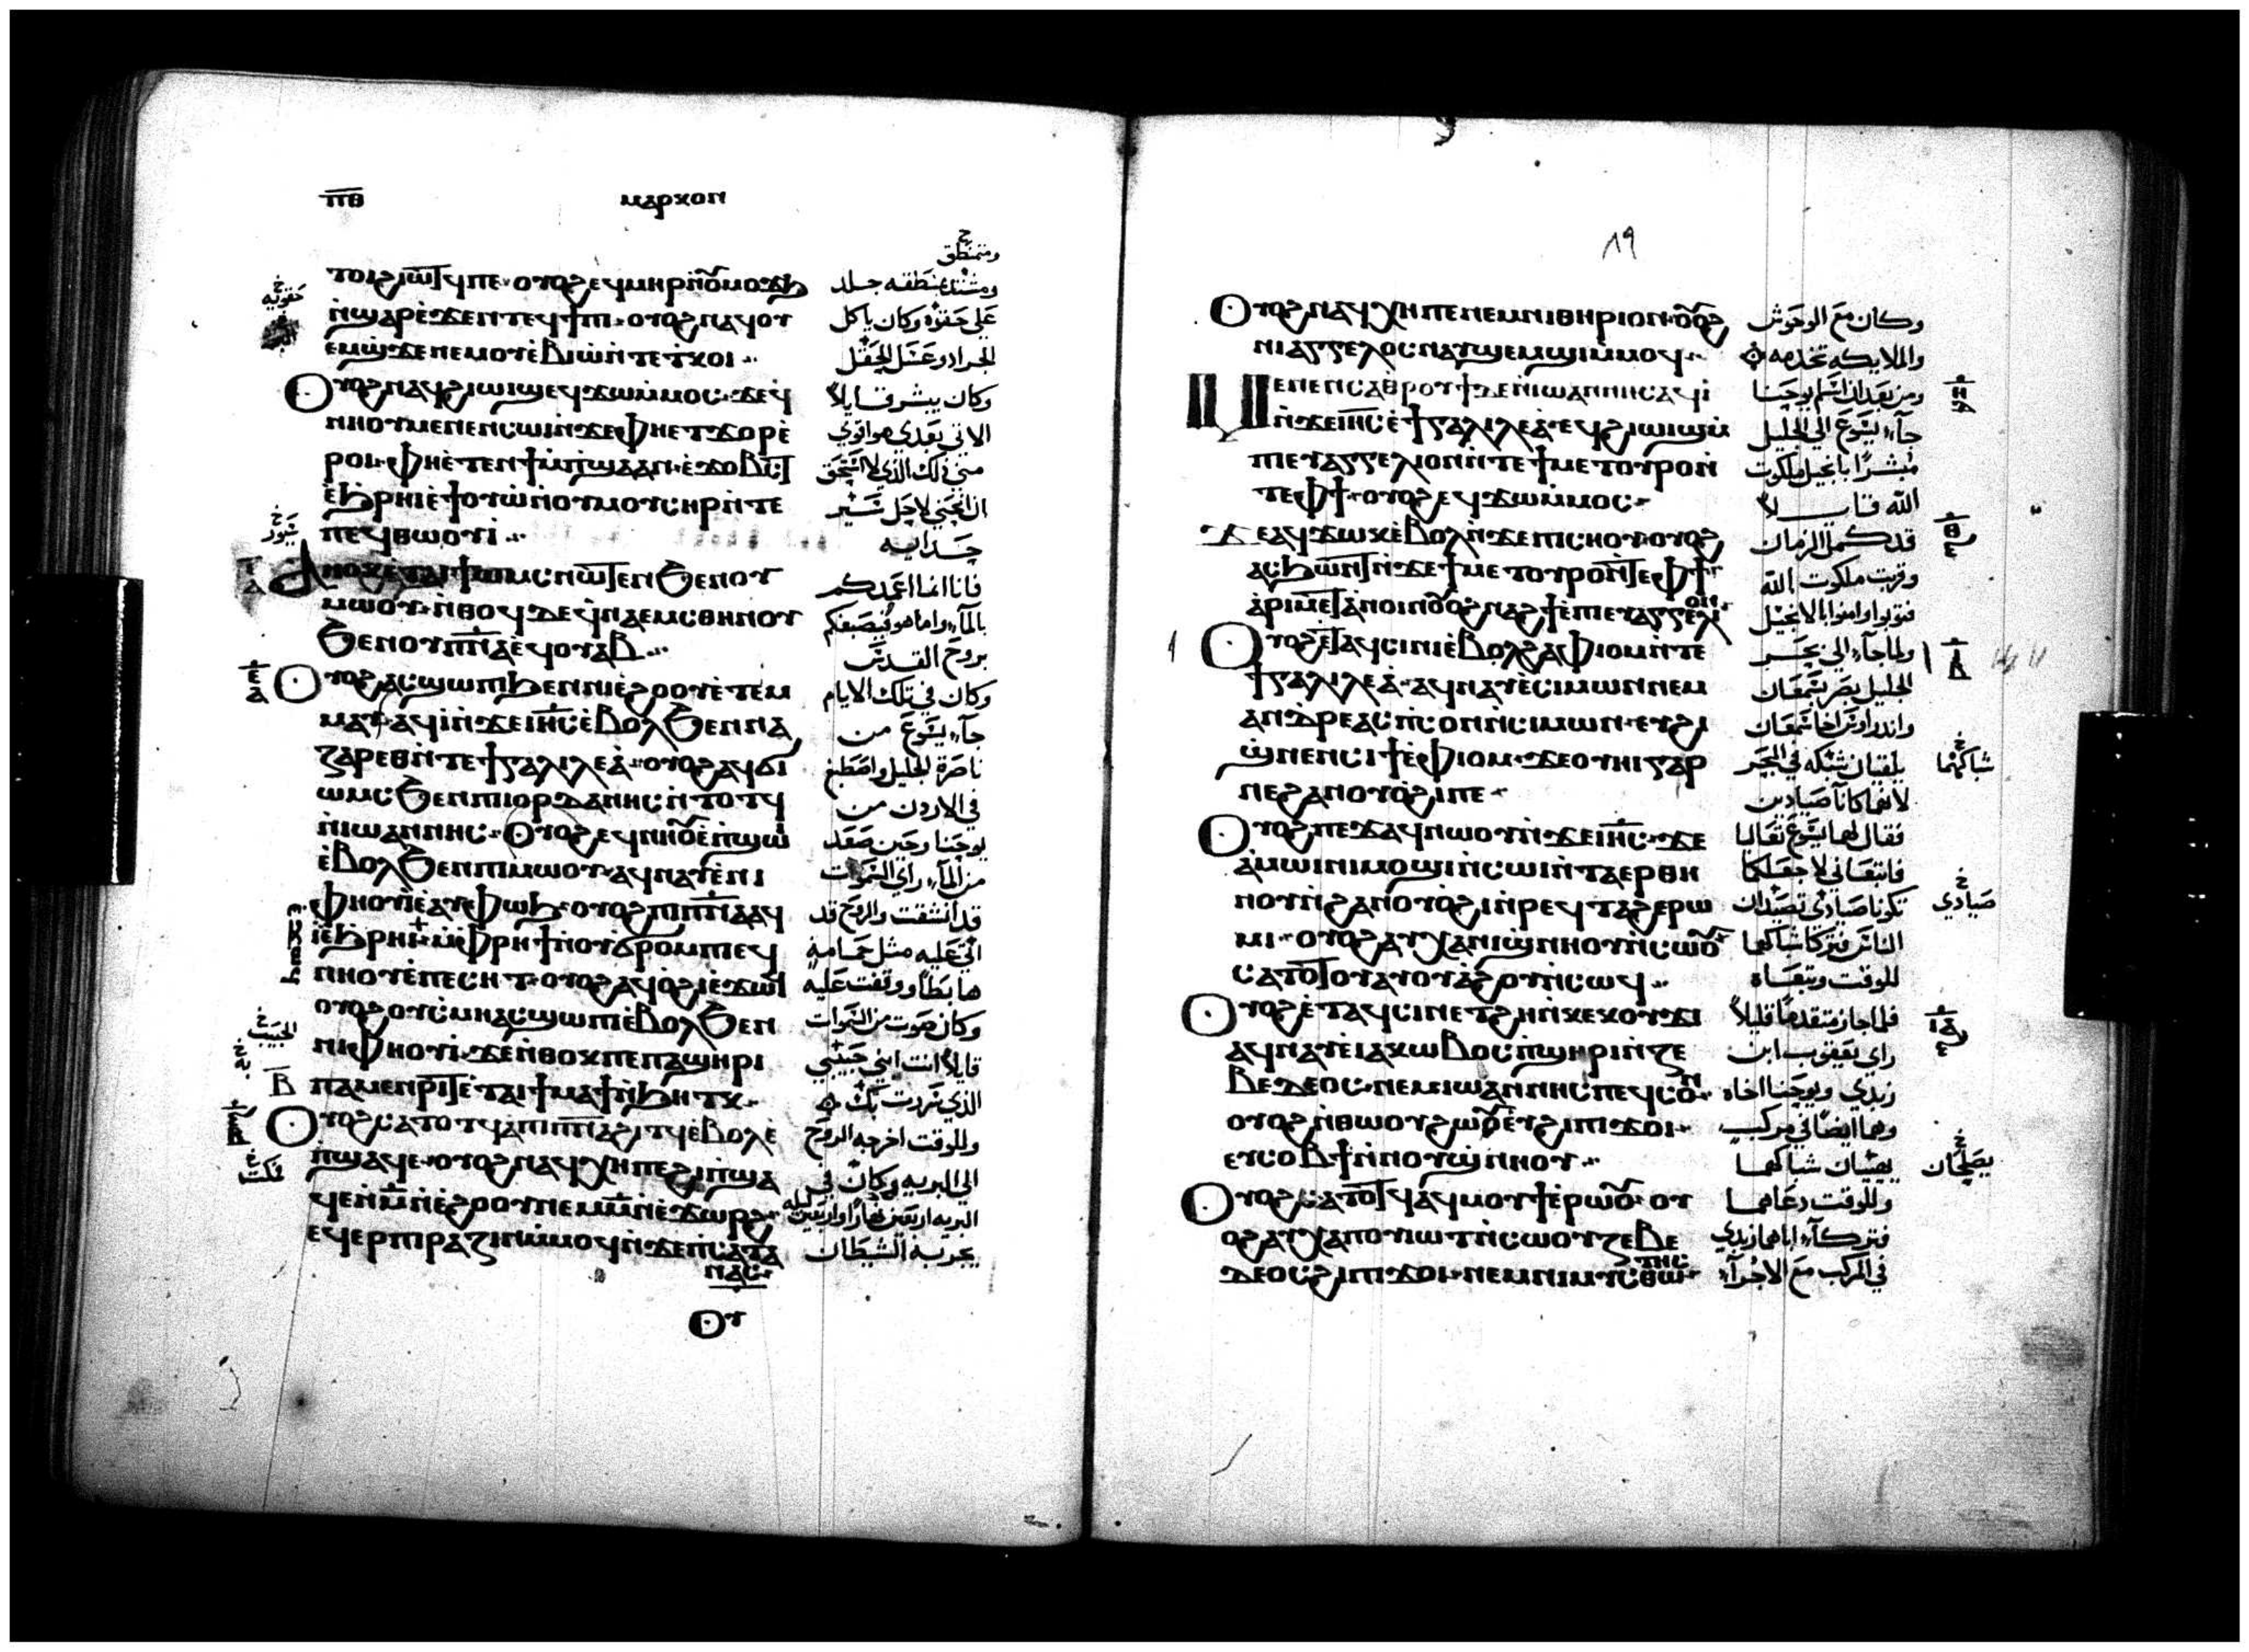 ⲡⲑ
ⲙⲁⲣⲕⲟⲛ
ⲛ̀ϣⲁⲣ ϧⲉⲛ ⲧⲉϥϯⲡⲓ ⲟⲩⲟϩ ⲛⲁϥⲟⲩ
ⲉⲙϣ̀ϫⲉ ⲛⲉⲙ ⲟⲩⲉ̀ⲃⲓⲱ̀ ⲛ̀ⲧⲉ ⲧ̀ⲕⲟⲓ
Ⲟⲩⲟϩ ⲛⲁϥϩⲓⲱⲓϣ ⲉϥϫⲱ ⲙ̀ⲙⲟⲥ ϫⲉ ϥ̀
ⲛⲏⲟⲩ ⲙⲉⲛⲉⲛⲥⲱⲓ ⲛ̀ϫⲉ ⲫⲏⲉⲧϫⲟⲣ ⲉ̀
ⲣⲟⲓ ⲫⲏⲉ̀ⲧⲉ ⲛ̀ϯⲙ̀ⲡϣⲁ ⲁⲛ
ⲉ̀ϧⲣⲏⲓ ⲉ̀ϯⲟⲩⲱ̀ ⲛ̀ⲟⲩⲙⲟⲩⲥⲏⲣ ⲛ̀ⲧⲉ
ⲡⲉϥⲑⲱⲟⲩⲓ̀
Ⲁⲛⲟⲕ ⲉ̀ⲧⲁⲓϯⲱⲙⲥ ⲛⲱⲧⲉⲛ ϧⲉⲛ ⲟⲩ
ⲙⲱⲟⲩ ⲛ̀ⲑⲟϥ ⲇⲉ ϥ̀ⲛⲁⲉⲙⲥ ⲑⲏⲛⲟⲩ
ϧⲉⲛ ⲟⲩⲡ̅ⲛ̅ⲁ̅ ⲉϥⲟⲩⲁⲃ
Ⲟⲩⲟϩ ⲁⲥϣⲱⲡⲓ ϧⲉⲛ ⲛⲓⲉ̀ϩⲟⲟⲩ ⲉ̀ⲧⲉⲙ
ⲙⲁⲩ ⲁϥⲓ̀ ⲛ̀ϫⲉ ⲓⲏ̅ⲥ̅ ⲉ̀ⲃⲟⲗ ϧⲉⲛ ⲛⲁ
ⲍⲁⲣⲉⲑ ⲛ̀ⲧⲉ ϯⲅⲁⲗⲓⲗⲉⲁ̀ ⲟⲩⲟϩ ⲁϥϭⲓ
ⲱⲙⲥ ϧⲉⲛ ⲡⲓⲓⲟⲣⲇⲁⲛⲏⲥ ⲛ̀ⲧⲟⲧϥ
ⲛ̀ⲓⲱⲁⲛⲛⲏⲥ Ⲟⲩⲟϩ ⲉϥⲛⲏⲟⲩ ⲉ̀ⲡ̀ϣⲱⲓ
ⲉ̀ⲃⲟⲗ ϧⲉⲛ ⲡⲓⲙⲱⲟⲩ ⲁϥⲛⲁⲩ ⲉ̀ⲛⲓ
ⲫⲏⲟⲩⲓ̀ ⲉ̀ⲁⲩⲫⲱϧ ⲟⲩⲟϩ ⲡⲓⲡ̅ⲛ̅ⲁ̅ ⲁϥ
ⲓ̀ ⲉ̀ϧⲣⲏⲓ ⲙ̀ⲫⲣⲏϯ ⲛ̀ⲟⲩϭⲣⲟⲙⲡⲓ ⲉϥ
ⲛⲏⲟⲩ ⲉ̀ⲡⲉⲥⲏⲧ ⲟⲩⲟϩ ⲁϥⲟ̀ϩⲓ ⲉ̀ϫⲱϥ
ⲟⲩⲟϩ ⲟⲩⲥ̀ⲙⲏ ⲁⲥϣⲱⲡⲓ ⲉ̀ⲃⲟⲗ ϧⲉⲛ
ⲛⲓⲫⲏⲟⲩⲓ̀ ϫⲉ ⲛ̀ⲑⲟⲕ ⲡⲉ ⲡⲁϣⲏⲣⲓ
ⲡⲁⲙⲉⲛⲣⲓⲧ ⲉ̀ⲧⲁⲓϯⲙⲁϯ ⲛ̀ϧⲏⲧⲕ
Ⲟⲩⲟϩ ⲥⲁⲧⲟⲧϥ ⲁ ⲡⲓⲡ̅ⲛ̅ⲁ̅ ϩⲓⲧϥ ⲉ̀ⲃⲟⲗ ⲉ̀
ⲡ̀ϣⲁϥⲉ ⲟⲩⲟϩ ⲛⲁϥⲭⲏ ⲡⲉ ϩⲓ ⲡ̀ϣⲁ
ϥⲉ ⲙ̅ ⲛ̀ⲉ̀ϩⲟⲟⲩ ⲛⲉⲙ ⲙ̅ ⲛ̀ⲉ̀ϫⲱⲣϩ
ⲉϥⲉⲣⲡⲓⲣⲁⲍⲓⲛ ⲙ̀ⲙⲟϥ ⲛ̀ϫⲉ ⲡ̀ⲥⲁⲧⲁ
ⲛⲁⲥ
Ⲟⲩ
ومتمنطق
ومشتد بمنطقه جلد
علي حقوه وكان ياكل
الجراد وعسل الحقل
وكان يبشر قايلاً
الاتي بعدي هو اقوي
مني ذلك الذي لا استحق
ان انحني لاحل سير
حدايه
فانا انما اعمدكم
بالمآء واما هو فيصبغكم
بروح القدس
وكان في تلك الايام
جآء يسوع من
ناصرة الجليل واصطبغ
في الاردن من
يوحنا وحين صعد
من المآء راي السموات
قد انشقت والروح قد
اتي عليه مثل حمامه
هابطاً ووقفت عليه
وكان صوت من السموات
قايلاً انت ابني حبيبي
الذي سررت بك
وللوقت اخرجه الروح
الي البريه وكان في
البريه اربعين نهاراً واربعين ليله
يجربه الشيطان
٨٩
Ⲟⲩⲟϩ ⲛⲁϥⲭⲏ ⲡⲉ ⲛⲉⲙ ⲛⲓⲑⲏⲣⲓⲟⲛ ⲟⲩⲟϩ
ⲛⲓⲁⲅⲅⲉⲗⲟⲥ ⲛⲁⲩϣⲉⲙϣⲓ ⲙ̀ⲙⲟϥ
Ⲙⲉⲛⲉⲛⲥⲁ ⲑⲣⲟⲩϯ ⲇⲉ ⲛ̀ⲓⲱⲁⲛⲛⲏⲥ ⲁϥⲓ̀
ⲛ̀ϫⲉ ⲓⲏ̅ⲥ̅ ⲉ̀ϯⲅⲁⲗⲓⲗⲉⲁ̀ ⲉϥϩⲓⲱⲓϣ ⲙ̀
ⲡⲓⲉⲩⲁⲅⲅⲉⲗⲓⲟⲛ ⲛ̀ⲧⲉ ϯⲙⲉⲧⲟⲩⲣⲟ ⲛ̀
ⲧⲉ ⲫϯ ⲟⲩⲟϩ ⲉϥϫⲱ ⲙ̀ⲙⲟⲥ
ϫⲉ ⲁϥϫⲱⲕ ⲉ̀ⲃⲟⲗ ⲛ̀ϫⲉ ⲡⲓⲥⲏⲟⲩ ⲟⲩⲟϩ
ⲁⲥϧⲱⲛⲧ ⲛ̀ϫⲉ ϯⲙⲉⲧⲟⲩⲣⲟ ⲛ̀ⲧⲉ ⲫϯ
ⲁⲣⲓⲙⲉⲧⲁⲛⲟⲓⲛ ⲟⲩⲟϩ ⲛⲁϩϯ ⲉ̀ⲡⲓⲉⲩⲁⲅⲅⲉⲗⲓⲟⲛ
Ⲟⲩⲟϩ ⲉⲧⲁϥⲥⲓⲛⲓ ⲉ̀ⲃⲟⲗ ϩⲁ ⲫⲓⲟⲙ ⲛ̀ⲧⲉ
ϯⲅⲁⲗⲓⲗⲉⲁ̀ ⲁϥⲛⲁⲩ ⲉ̀ⲥⲓⲙⲱⲛ ⲛⲉⲙ
ⲁⲛⲇⲣⲉⲁⲥ ⲡ̀ⲥⲟⲛ ⲛ̀ⲥⲓⲙⲱⲛ ⲉⲩϩⲓ
ϣ̀ⲛⲉ ⲛ̀ⲥⲓϯ ⲉ̀ⲫⲓⲟⲙ ϫⲉ ⲟⲩⲏⲓ ⲅⲁⲣ
ⲛⲉ ϩⲁⲛⲟⲩⲟ̀ϩⲓ ⲡⲉ
Ⲟⲩⲟϩ ⲡⲉϫⲁϥ ⲛⲱⲟⲩ ⲛ̀ϫⲉ ⲓⲏ̅ⲥ̅ ϫⲉ
ⲁ̀ⲙⲱⲓⲛⲓ ⲙⲟϣⲓ ⲛ̀ⲥⲱⲓ ⲛ̀ⲧⲁⲉⲣ ⲑⲏ
ⲛⲟⲩ ⲛ̀ϩⲁⲛⲟⲩⲟ̀ϩⲓ ⲛ̀ⲣⲉϥⲧⲁϩⲉ ⲣⲱ
ⲙⲓ ⲟⲩⲟϩ ⲁⲩⲭⲁ ⲛⲓϣ̀ⲛⲏⲟⲩ ⲛ̀ⲥⲱⲟⲩ
ⲥⲁⲧⲟⲧⲟⲩ ⲁⲩⲟⲩⲁ̀ϩⲟⲩ ⲛ̀ⲥⲱϥ
Ⲟⲩⲟϩ ⲉ̀ⲧⲁϥⲥⲓⲛⲓ ⲉⲧϩⲏ ⲛ̀ⲕⲉⲕⲟⲩϫⲓ
ⲁϥⲛⲁⲩ ⲉ̀ⲓⲁⲕⲱⲃⲟⲥ ⲡ̀ϣⲏⲣⲓ ⲛ̀ⲍⲉ
ⲃⲉⲇⲉⲟⲥ ⲛⲉⲙ ⲓⲱⲁⲛⲛⲏⲥ ⲡⲉϥⲥⲟⲛ
ⲟⲩⲟϩ ⲛ̀ⲑⲱⲟⲩ ϩⲱⲟⲩ ⲉⲩϩⲓ ⲡⲓϫⲟⲓ
ⲉⲩⲥⲟⲃϯ ⲛ̀ⲛⲟⲩϣ̀ⲛⲏⲟⲩ
Ⲟⲩⲟϩ ⲥⲁⲧⲟⲧϥ ⲁϥⲙⲟⲩϯ ⲉ̀ⲣⲱⲟⲩ ⲟⲩ
ⲟϩ ⲁⲩⲭⲁ ⲡⲟⲩⲓⲱⲧ ⲛ̀ⲥⲱⲟⲩ ⲍⲉⲃⲉ
ⲇⲉⲟⲥ ϩⲓ ⲡⲓϫⲟⲓ ⲛⲉⲙ ⲛⲓⲙⲓⲥⲑⲱⲧⲏⲥ
وكان مع الوحوش
والملايكه تخدمه
ومن بعد ان اسلم يوحنا
جآء يسوع الي الجليل
مبشراً بانجيل ملكوت
الله قايلاً
قد كمل الزمان
وقربت ملكوت الله
فتوبوا وامنوا بالانجيل
ولما جآء الي بحر
الجليل بصر بسمعان
واندراوس اخا سمعان
يلقيان شبكه في البحر
لانهما كانا صيادين
فقال لهما يسوع تعاليا
فاتبعاني لاجعلكما
تكونا صيادي تصيدان
الناس فتركا شباكهما
للوقت وتبعاه
فلما جاز متقدماً قليلاً
راي يعقوب ابن
زبدي ويوحنا اخاه
وهما ايضاً في مركب
يهييان شباكهما
وللوقت دعاهما
فتركآء اباهما زبدي
في المركب مع الاجرآء
شباكهما
صيادي
يصلحان